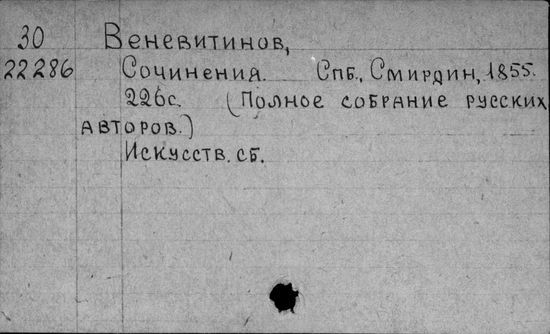 30 Веневитинов,
22286 Сочинения. Спб., Смирдин, 1855.
226с. (Полное собрание русских
авторов.)
Искусств. сб.